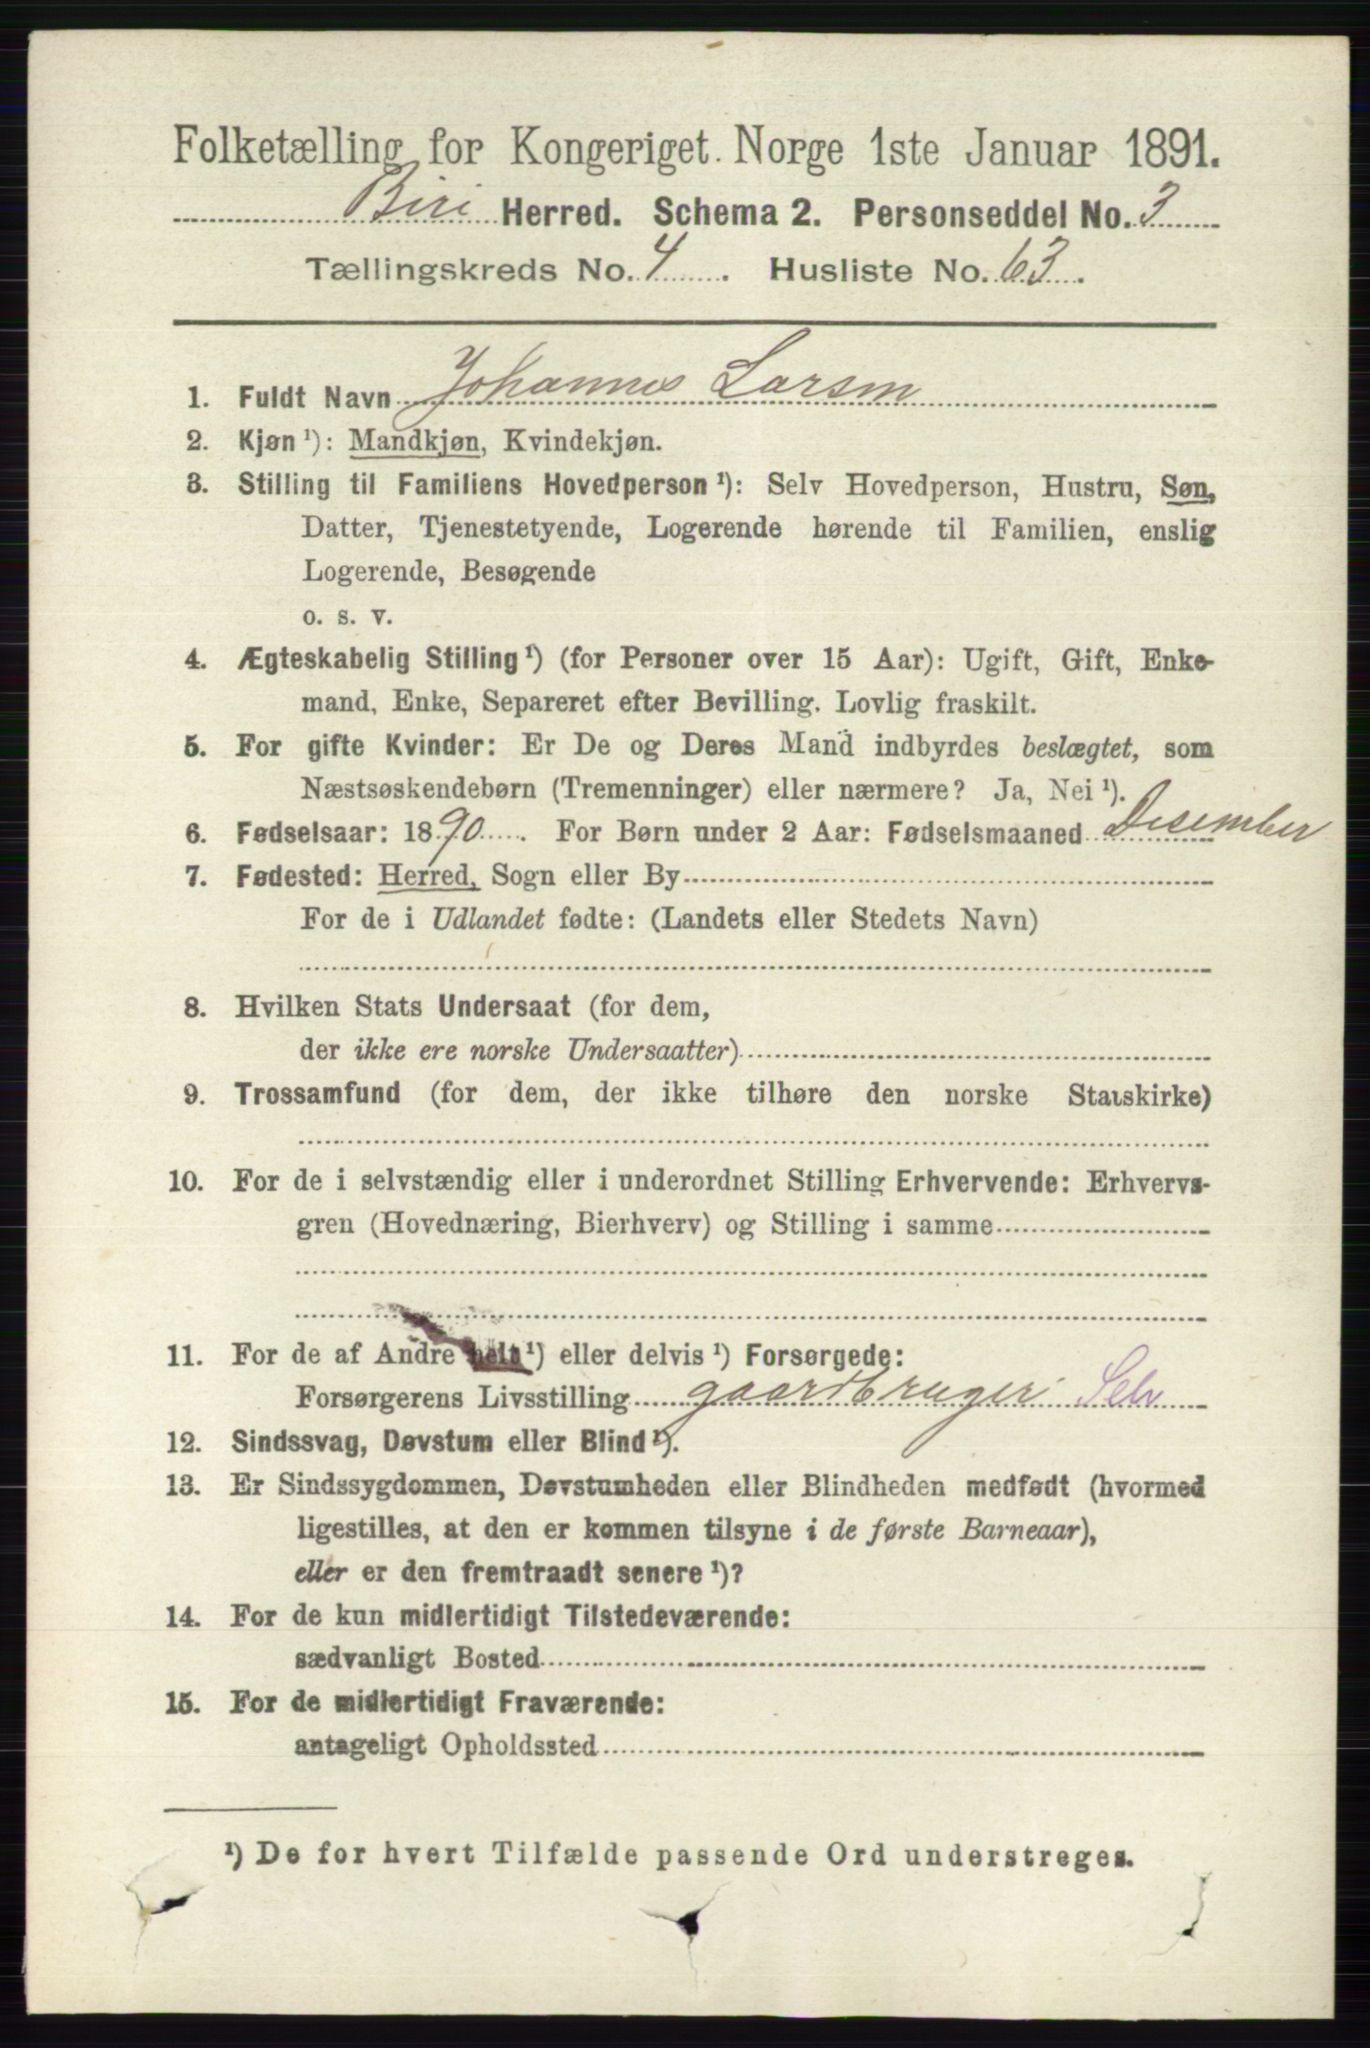 Folketælling for Kongeriget Norge 1ste Januar 1891.
Biri Herred. Schema 2. Personseddel No. 3
Tællingskreds No. 4. Husliste No. 63.
1. Fuldt Navn Johannes Larsen
2. Kjøn ¹): Mandkjøn, Kvindekjøn.
3. Stilling til Familiens Hovedperson ¹): Selv Hovedperson, Hustru, Søn,
Datter, Tjenestetyende, Logerende hørende til Familien, enslig
Logerende, Besøgende
o. s. v.
4. Ægteskabelig Stilling ¹) (for Personer over 15 Aar): Ugift, Gift, Enke-
mand, Enke, Separeret efter Bevilling. Lovlig fraskilt.
5. For gifte Kvinder: Er De og Deres Mand indbyrdes beslægtet, som
Næstsøskendebørn (Tremenninger) eller nærmere? Ja, Nei ¹).
6. Fødselsaar: 1890. For Børn under 2 Aar: Fødselsmaaned Desember
7. Fødested: Herred, Sogn eller By
For de i Udlandet fødte: (Landets eller Stedets Navn)
8. Hvilken Stats Undersaat (for dem,
der ikke ere norske Undersaatter)
9. Trossamfund (for dem, der ikke tilhøre den norske Statskirke)
10. For de i selvstændig eller i underordnet Stilling Erhvervende: Erhvervs-
gren (Hovednæring, Bierhverv) og Stilling i samme
11. For de af Andre helt ¹) eller delvis ¹) Forsørgede:
Forsørgerens Livsstilling gaardbruger Selv
12. Sindssvag, Døvstum eller Blind ¹).
13. Er Sindssygdommen, Døvstumheden eller Blindheden medfødt (hvormed
ligestilles, at den er kommen tilsyne i de første Barneaar),
eller er den fremtraadt senere ¹)?
14. For de kun midlertidigt Tilstedeværende:
sædvanligt Bosted
15. For de midlertidigt Fraværende:
antageligt Opholdssted
¹) De for hvert Tilfælde passende Ord understreges.